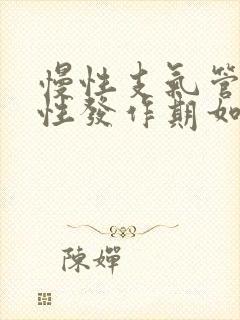 慢性支氣管
性發作期如
陳嬋